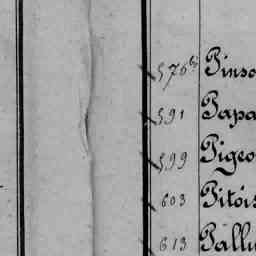 576 bis Pinso
591 Papa
599 Pigeo
603 Pitois
613 Pallu